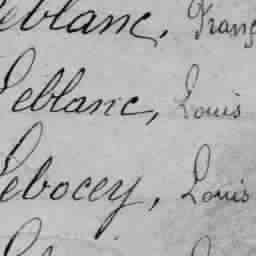 Leblanc, Franç
Leblanc, Louis
Lebocey, Louis